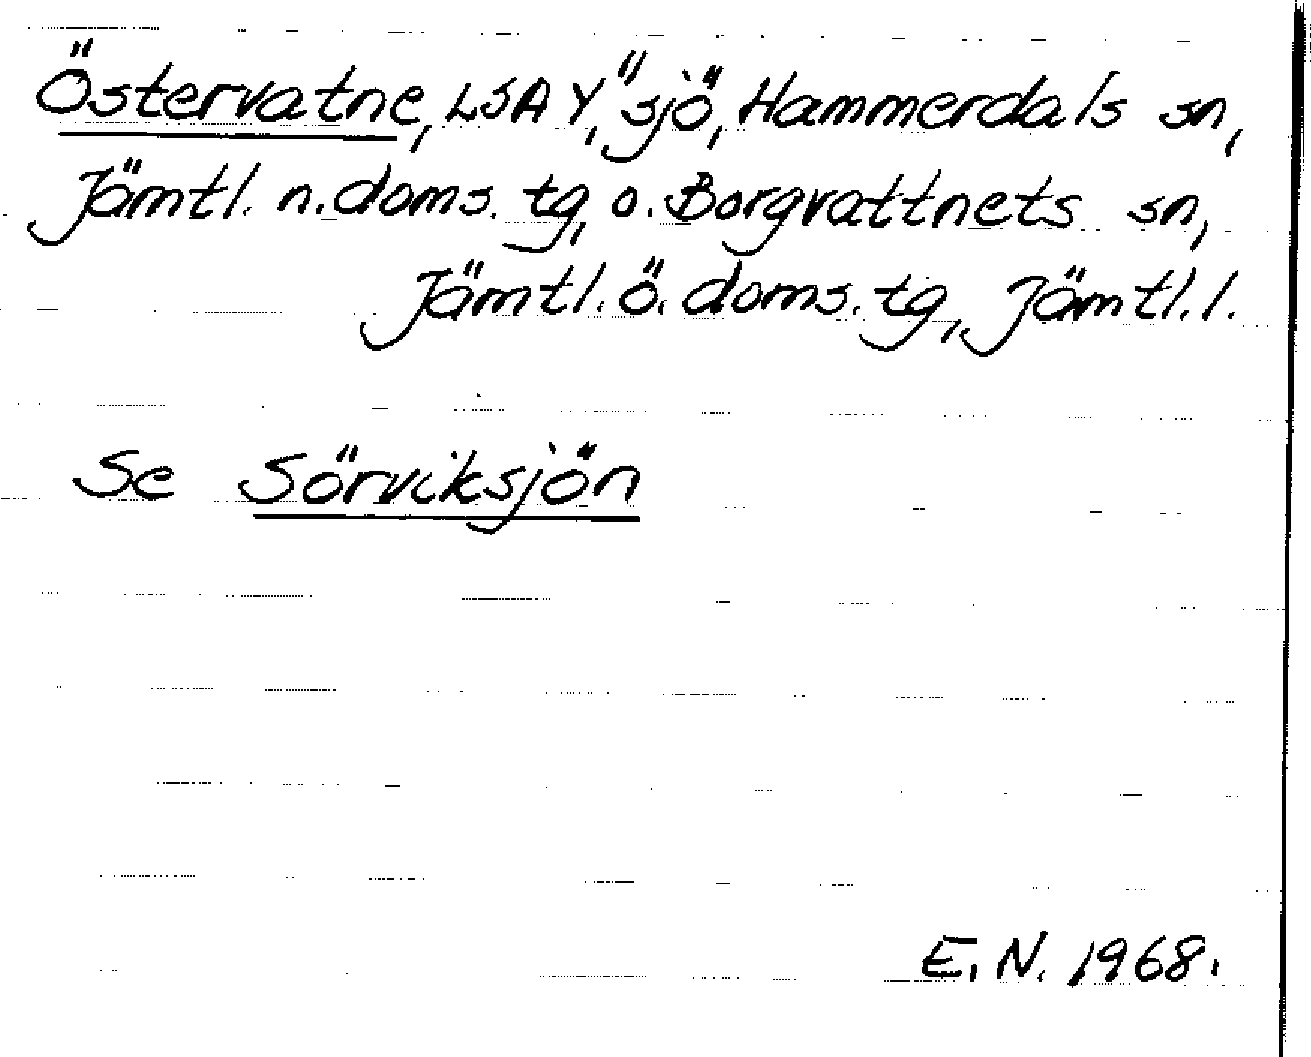 Östervatne, LSA Y, "sjö, Hammerdals sn,
Jämtl. n. doms. tg, o. Borgvattnets sn,
Jämtl. ö. doms. tg, Jämtl. l.
Se Sörviksjön
E. N. 1968.